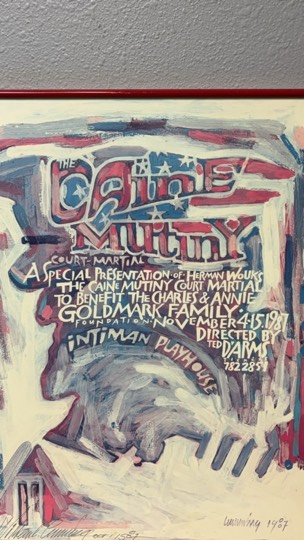 THE
CAINE
MUTINY
COURT-MARTIAL
A SPECIAL PRESENTATION OF HERMAN WOUKS
THE CAINE MUTINY COURT MARTIAL
TO BENEFIT THE CHARLES & ANNIE
GOLDMARK FAMILY
FOUNDATION · NOVEMBER 4-15. 1987
DIRECTED BY
TED D'ARMS
INTIMAN PLAYHOUSE
782 2859
cumming 1987